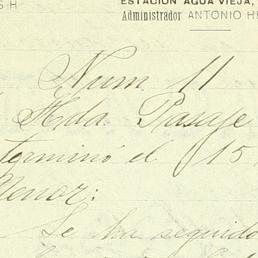 S H
ESTACIÓN AGUA VIEJA,
Administrador ANTONIO H
Num 11
Hda Pasaje
terminó el 15
Menor:
Se ha seguido